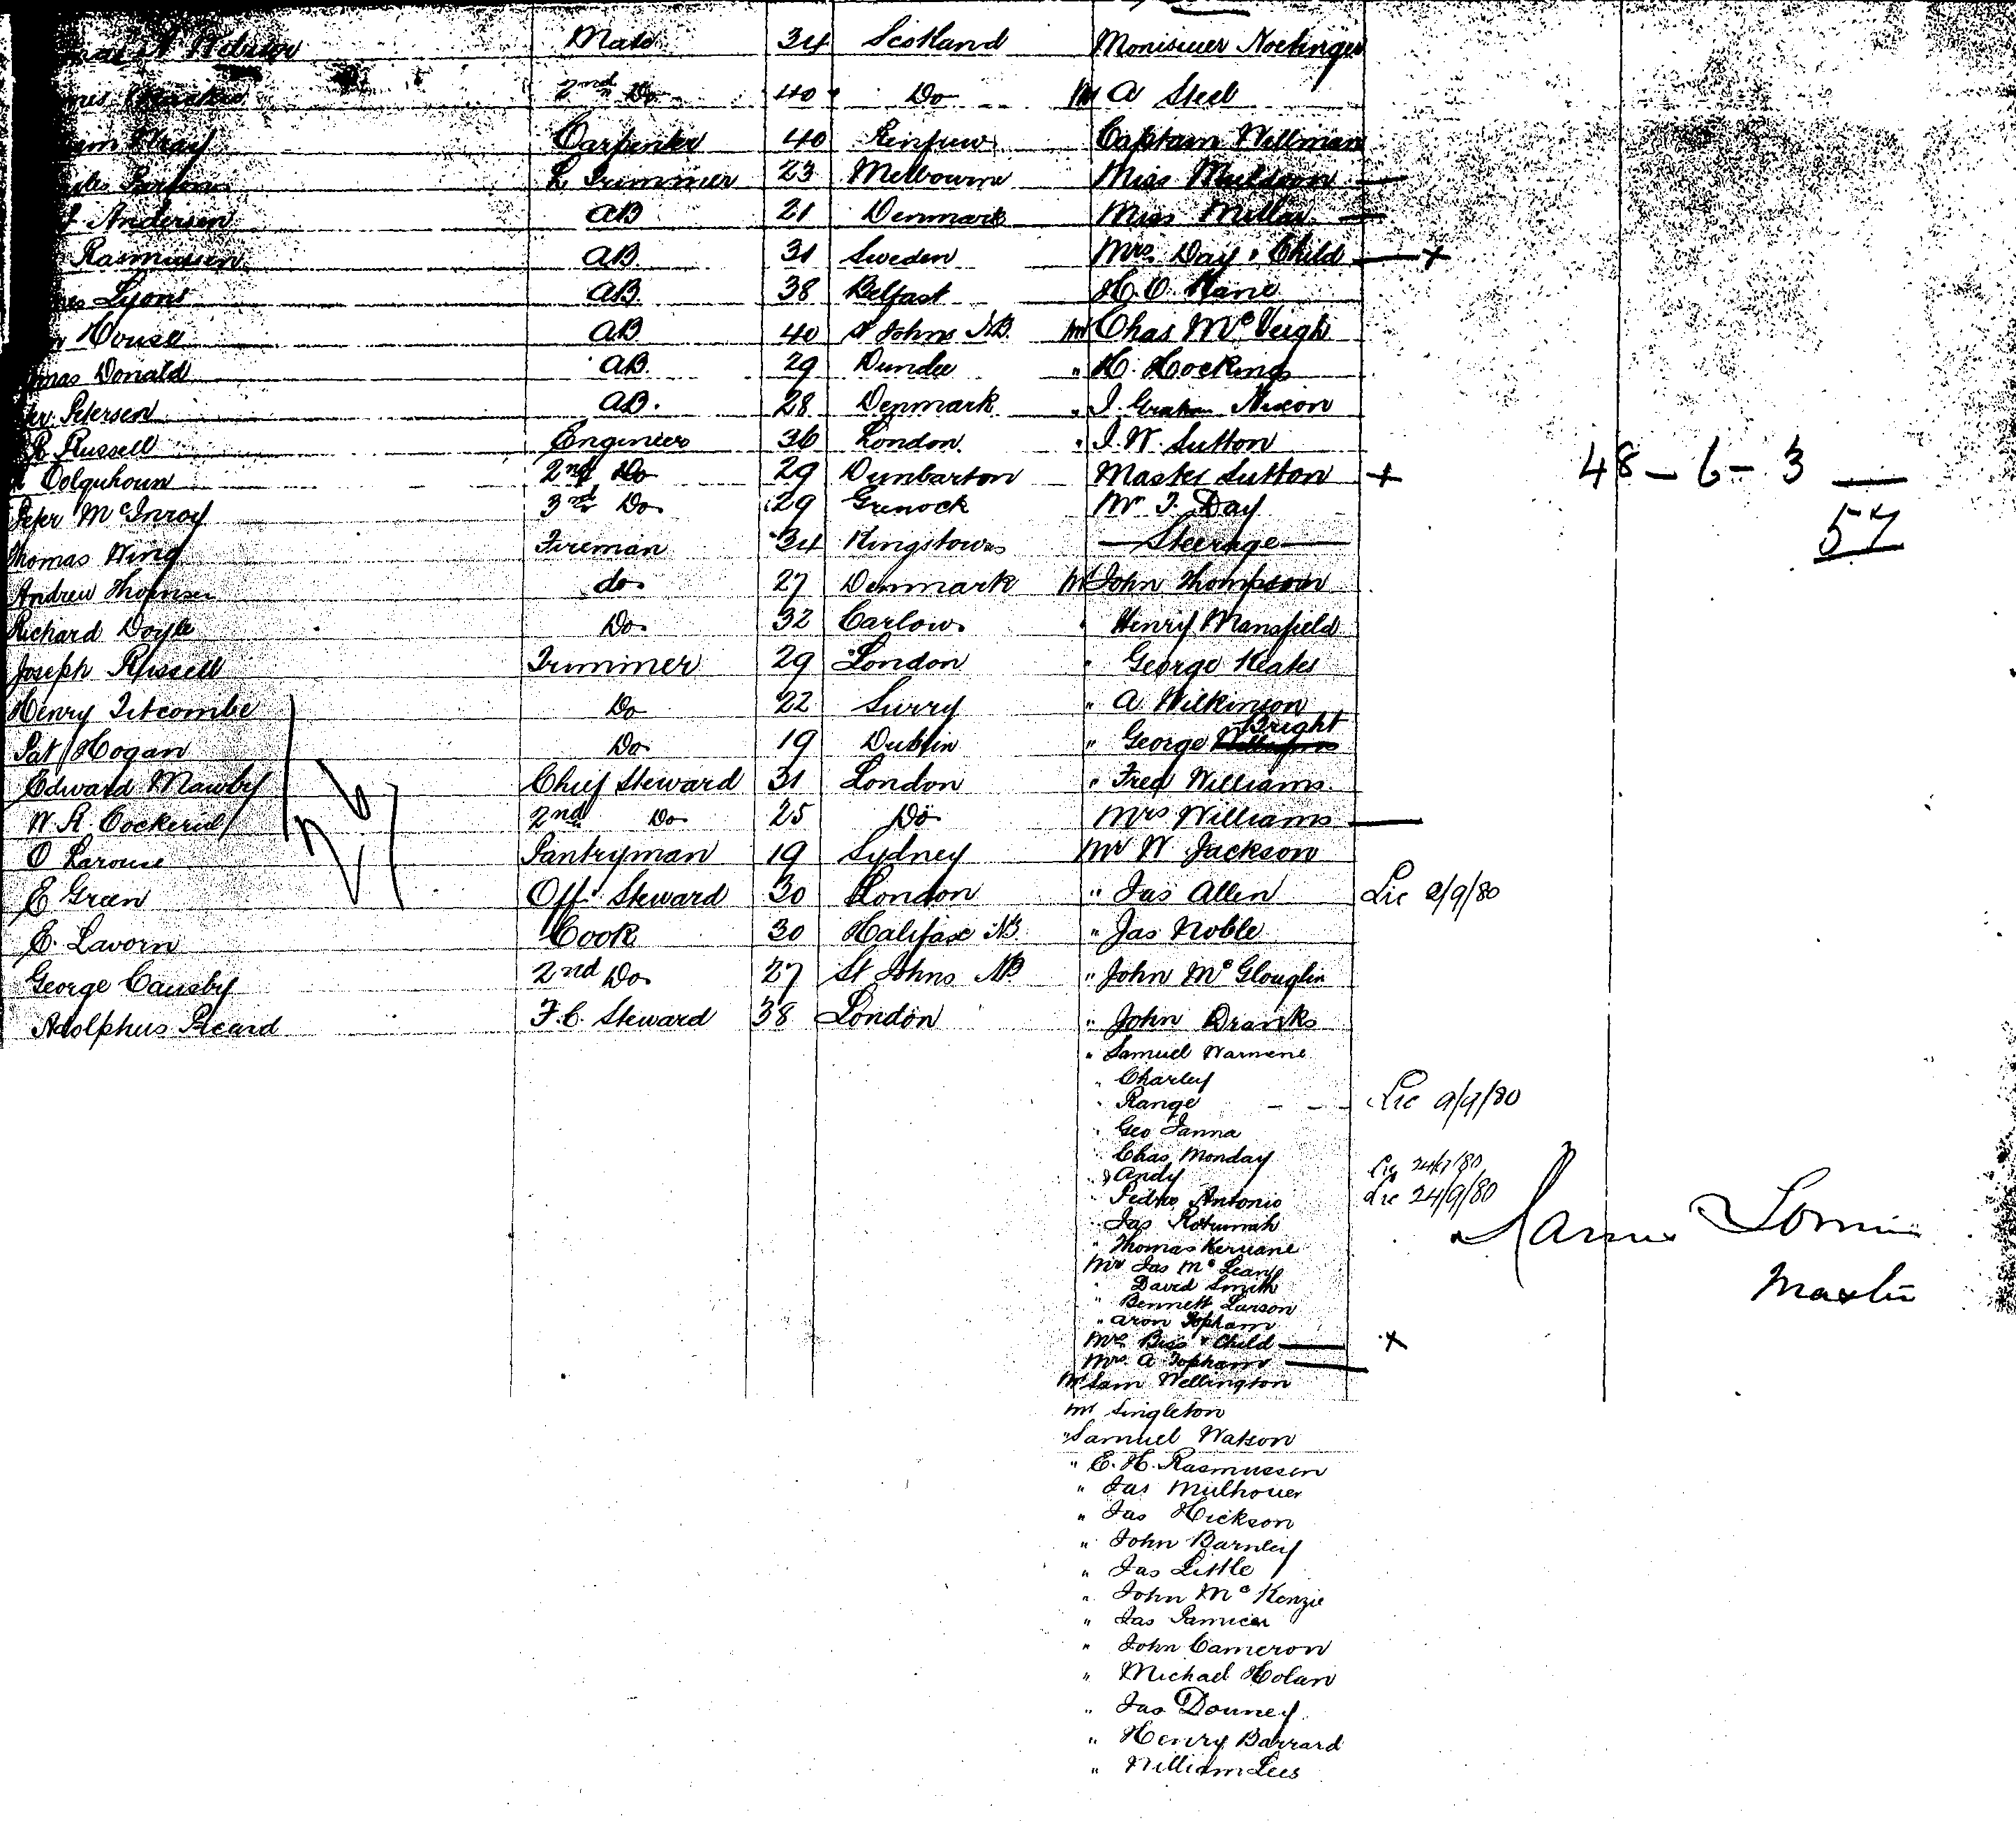 Mate 34 Scotland Monsieur Noetinger
2nd Do 40 Do Mr A Steel
Carpenter 40 Renfrew Captain Wellman
L. Trimmer 23 Melbourne Miss Muldoon
Andersen AB 21 Denmark Miss Millar
Rasmussen AB 31 Sweden Mrs Day & Child x
Lyons AB 38 Belfast H. O. Kane
AB 40 St Johns NB. Mr Chas McVeigh
Donald AB. 29 Dundee " H. Hocking
Petersen AB. 28 Denmark " J. Graham Nixon
Russell Engineer 36 London. " J. W. Sutton
Colquhoun 2nd Do 29 Dunbarton Master Sutton x 48 - 6 - 3
Peter McInroy 3rd Do 29 Grenock Mr T. Day 57
Thomas Wing Fireman 34 Kingstown Steerage
Andrew do 27 Denmark Mr John Thompson
Richard Doyle Do 32 Carlow " Henry Mansfield
Joseph Russell Trimmer 29 London " George Keates
Henry Titcombe Do 22 Surry " A Wilkinson
Pat Hogan Do 19 Dublin " George Bright
Edward Mawby Chief Steward 31 London " Fred Williams
W. R. Cockerid 2nd Do 25 Do Mrs Williams
O Larouse Pantryman 19 Sydney Mr W Jackson
E Green Off. Steward 30 London " Jas Allen Lic 2/9/80
E. Lavorn Cook 30 Halifax NB. " Jas Noble
George Causby 2nd Do 27 St Johns NB " John McGlouglin
Adolphus Picard F.C. Steward 38 London " John Dranks
26
" Samuel Warnene
" Charley
" Range Lic 9/9/80
" Geo Tanna
" Chas Monday
" Andy
" Pedro Antonio Lic 24/9/80
" Jas Rotumah
" Thomas
Mr Jas McLean
" David Smith
" Bennett Larson
" Aron Topham
Mrs Biss & Child x
Mrs A Topham
Mr Sam Wellington
Mr Singleton
" Samuel Watson
" E. H. Rasmussen
" Jas
" Jas Hickson
" John Barnley
" Jas Little
" John McKenzie
" Jas
" John Cameron
" Michael Holan
" Jas Douney
" Henry Barrard
" William Lees
Master